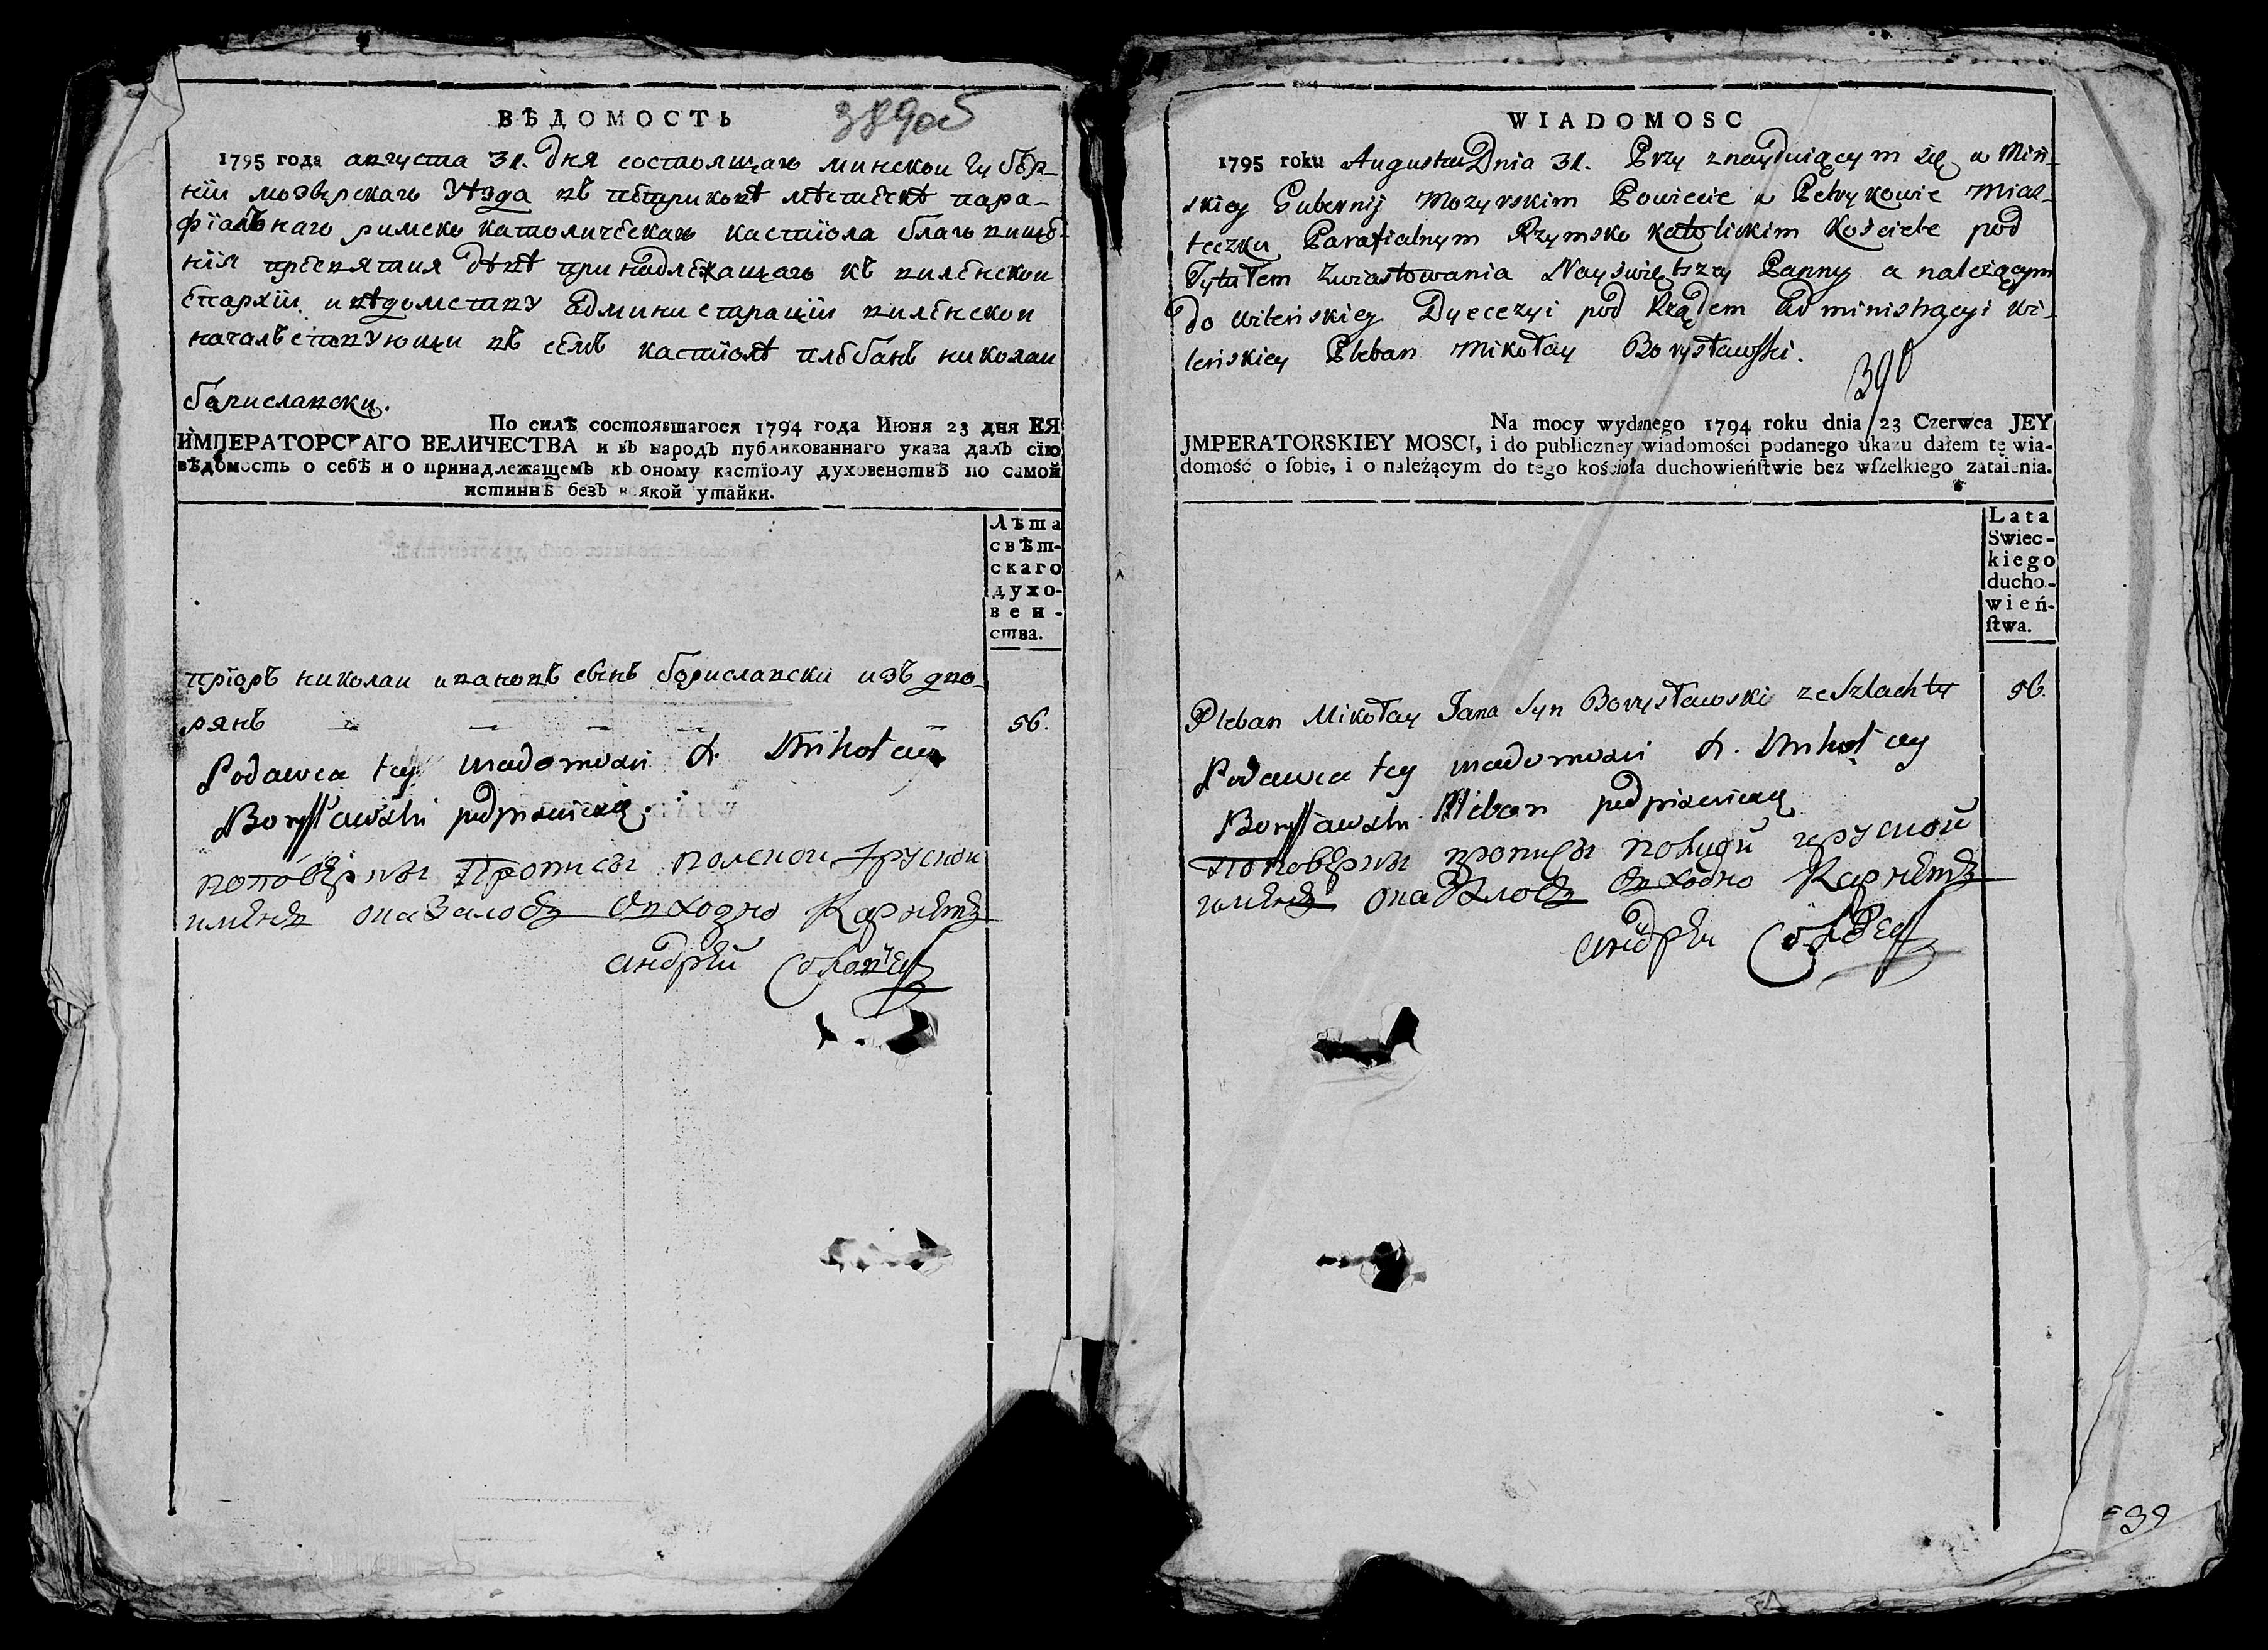 ВѢДОМОСТЬ
389об
1795 года августа 31. дня состоящаго минскои губер-
нїи мозырскаго уѣзда въ петриковѣ мѣстечкѣ пара-
фїальнаго римско католическаго кастїола благовище-
нїя пресвятыя дѣвѣ принадлежащаго къ виленскои
епархїи и вѣдомству администрацїи виленскои
начальствующи въ семъ кастїолѣ плебанъ николаи
бориславски.
По силѣ состоявшагося 1794 года Июня 23 дня ЕЯ
ИМПЕРАТОРСКАГО ВЕЛИЧЕСТВА и въ народъ публикованнаго указа далъ сїю
вѣдомость о себѣ и о принадлежащемъ къ оному кастїолу духовенствѣ по самой
истиннѣ безъ всякой утайки.
Лѣта
свѣт-
скаго
духо-
вен-
ства.
прїоръ николаи ивановъ сынъ бориславски изъ дво-
рянъ 56.
Podawca tey wiadomosci X. Mikołay
Borysławski podpisuię się.
польскои
имена Карнетъ
андрей
WIADOMOSC
1795 roku Augusta Dnia 31. Przy znayduiącym się w Miń-
skiey Gubernij Mozyrskim Powiecie w Petrykowie Mias-
teczku Parafialnym Rzymsko katolickim Kościele pod
Tytułem Zwiastowania Nayświętszey Panny a należącym
do Wileńskiey Dyecezyi pod Rządem Administracyi Wi-
leńskiey Pleban Mikołay Borysławski.
390
Na mocy wydanego 1794 roku dnia 23 Czerwca JEY
JMPERATORSKIEY MOSCI, i do publiczney wiadomości podanego ukazu dałem tę wia-
domość o ſobie, i o należącym do tego kościoła duchowieńſtwie bez wſzelkiego zataienia.
Lata
Swiec-
kiego
ducho-
wień-
ſtwa.
Pleban Mikołay Jana Syn Borysławski ze Szlachty 56.
Podawca tey wiadomosci X. Mikołay
Borysławski Pleban podpisuię się
имена Карнетъ
андрей
39